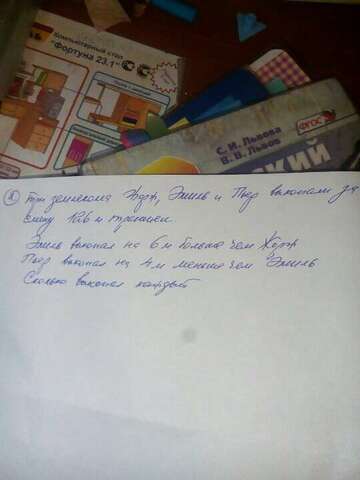 Компьютерный стол
"Фортуна 23.1"
С. И. Львова
В. В. Львов
ФГОС
СКИЙ
Три землекопа Жорж, Эмиль и Пьер выкопали за
смену 106 м траншеи
Эмиль выкопал на 6 м больше чем Жорж
Пьер выкопал на 4 м меньше чем Эмиль
Сколько выкопал каждый